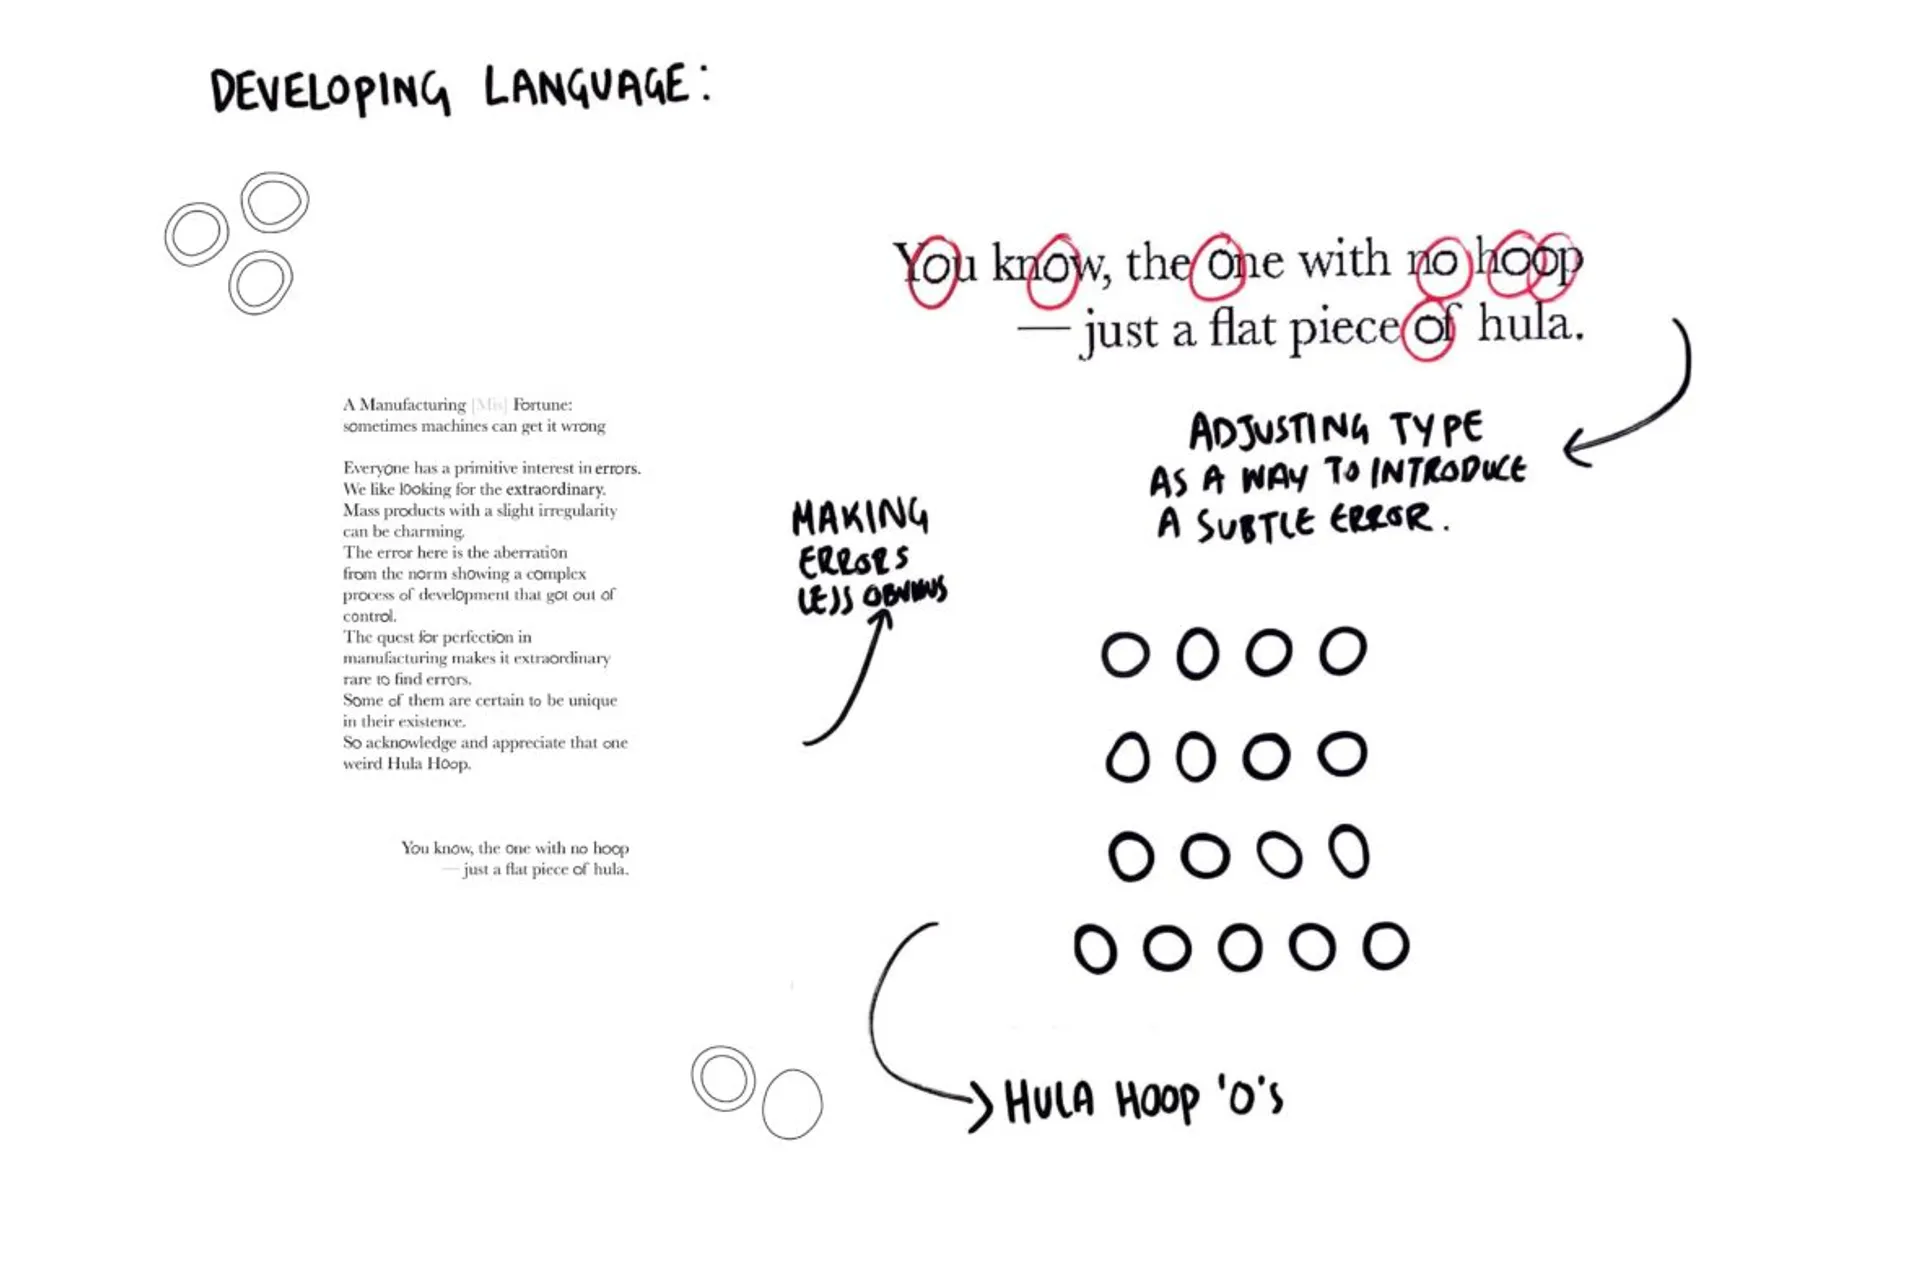 DEVELOPING LANGUAGE:
You know, the one with no hoop
— just a flat piece of hula.
ADJUSTING TYPE
AS A WAY TO INTRODUCE
A SUBTLE ERROR.
A Manufacturing [Mis] Fortune:
sometimes machines can get it wrong
Everyone has a primitive interest in errors.
We like looking for the extraordinary.
Mass products with a slight irregularity
can be charming.
The error here is the aberration
from the norm showing a complex
process of development that got out of
control.
The quest for perfection in
manufacturing makes it extraordinary
rare to find errors.
Some of them are certain to be unique
in their existence.
So acknowledge and appreciate that one
weird Hula Hoop.
You know, the one with no hoop
— just a flat piece of hula.
MAKING
ERRORS
LESS OBVIOUS
O O O O
O O O O
O O O O
O O O O O
HULA HOOP 'O'S